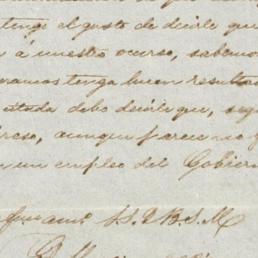 tengo el gusto de decirle qu
á nuestro ocurso, sabemo
ramos tenga buen resulta
citada debo decirle que, seg
reso, aunque parece no
un empleo del Gobier
S. S. Q. B. S. M